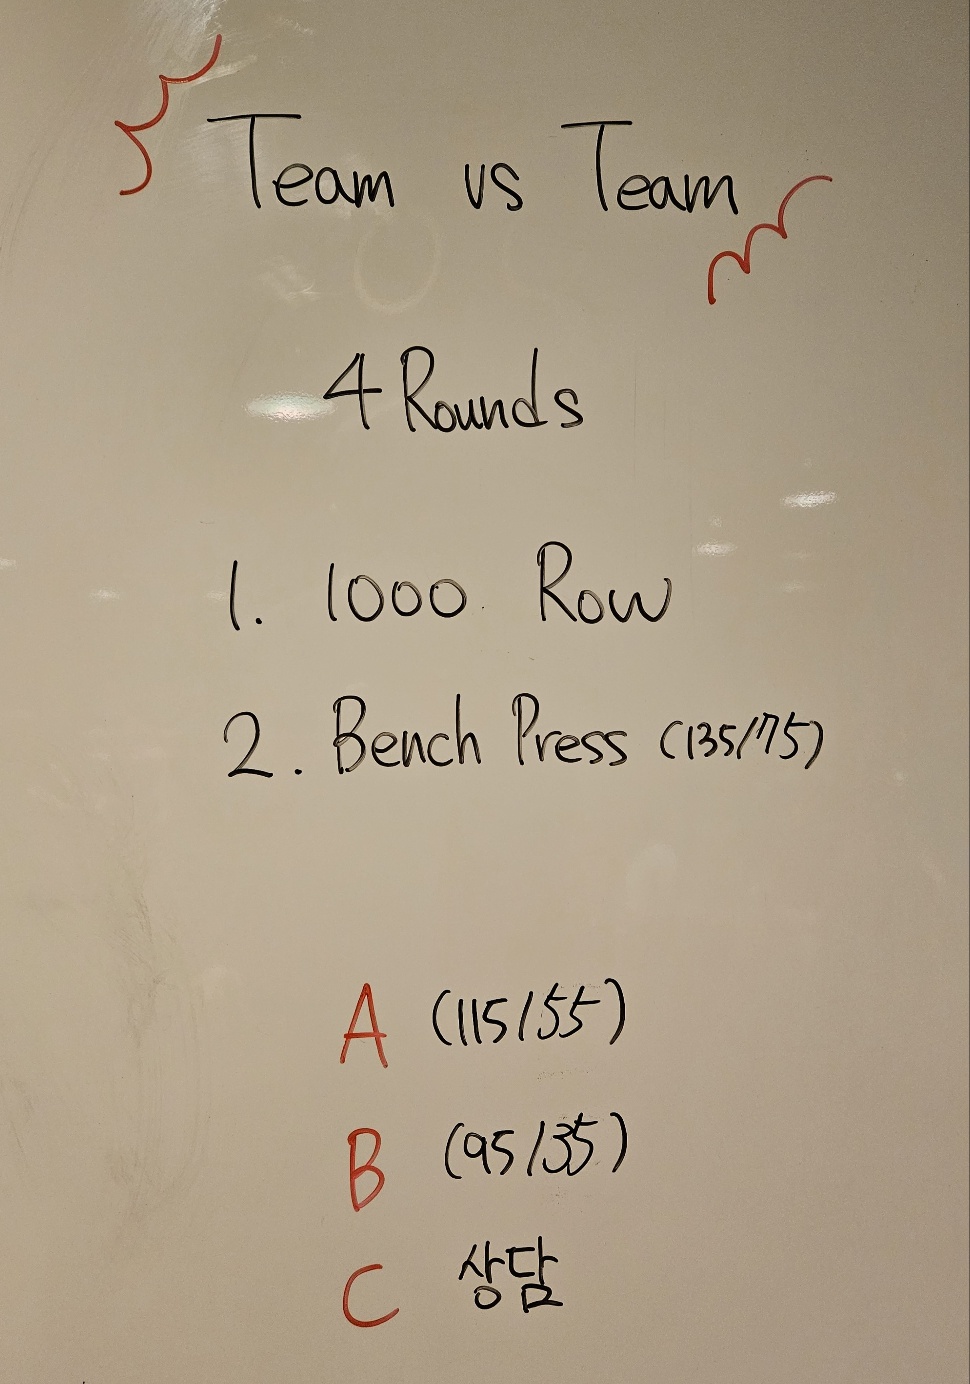 Team vs Team
4 Rounds
1. 1000 Row
2. Bench Press (135/75)
A (115/55)
B (95/35)
C 상담